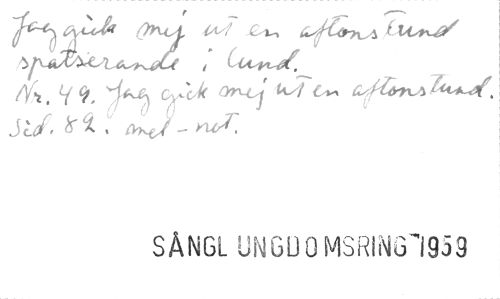 Jag gick mej ut en aftonstund
spatserande i lund.
Nr. 49. Jag gick mej ut en aftonstund.
Sid. 82. mel-not.
SÅNGL UNGDOMSRING 1959